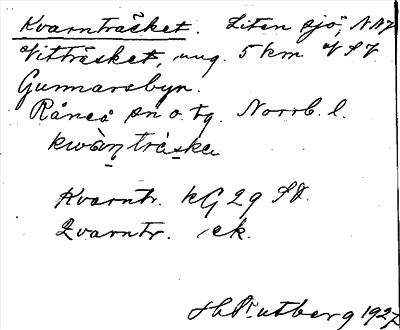 Kvarnträsket. Liten sjö, NNV
Vitträsket, ung. 5 km VSV
Gunnarsbyn.
Råneå sn o. tg. Norrb. l.
kwàṇträska
Kvarntr. kG 29 SV.
Qvarntr. ek.
utberg 1927